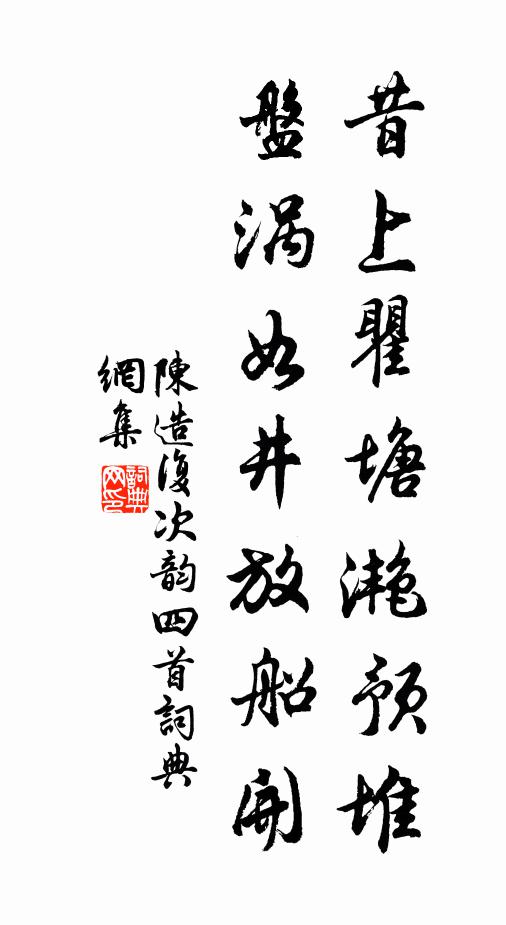 昔上瞿塘灔预堆
盤涡如井放船開
陳造復次韵四首詞典
網集
詞典網印